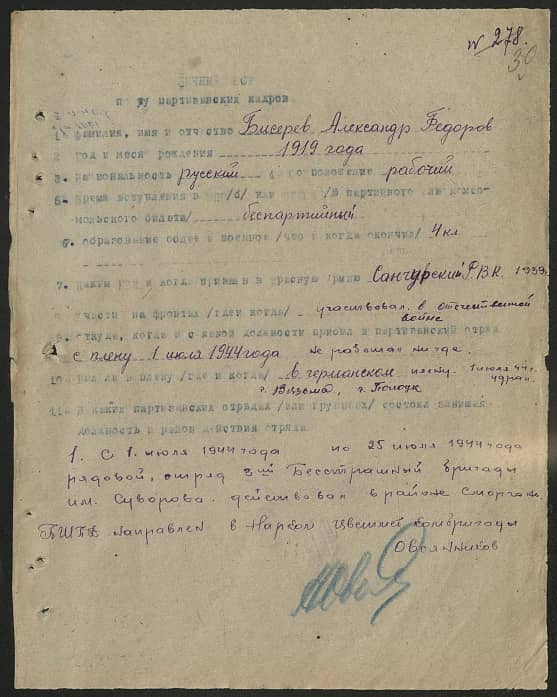 № 278.
30
личный лист
по у ту партизанских кадров
1 фамилия, имя и отчество Бисерев Александр Федоров
2 год и месяц рождения 1919 года
3. национальность русский 4. положение рабочий
5. Время вступления в /В партийного или комсо-
мольского билета/ беспартийный
6. образование общее и военное /что и когда окончил/ 4 кл.
7. каким и когда призван в красную армию Санчурский Р.В.К. 1939
участие на фронтах /где и когда/ участвовал в отечественной
войне
откуда, когда и с какой должности прибыл в партизанский отряд
с плену 1 июля 1944 года не работал нигде.
10. был ли в плену /где и когда/ в германском плену 1 июля 44 г.
г. Вязьма, г. Полоцк
11. В каких партизанских отрядах /или группах/ состоял занимая
должность и район действия отряда
1. С 1. июля 1944 года по 25 июля 1944 года
рядовой, отряд Бесстрашный бригады
им. Суворова. действовал в районе
БШПД направлен в Нарком комбригады
Овсянников